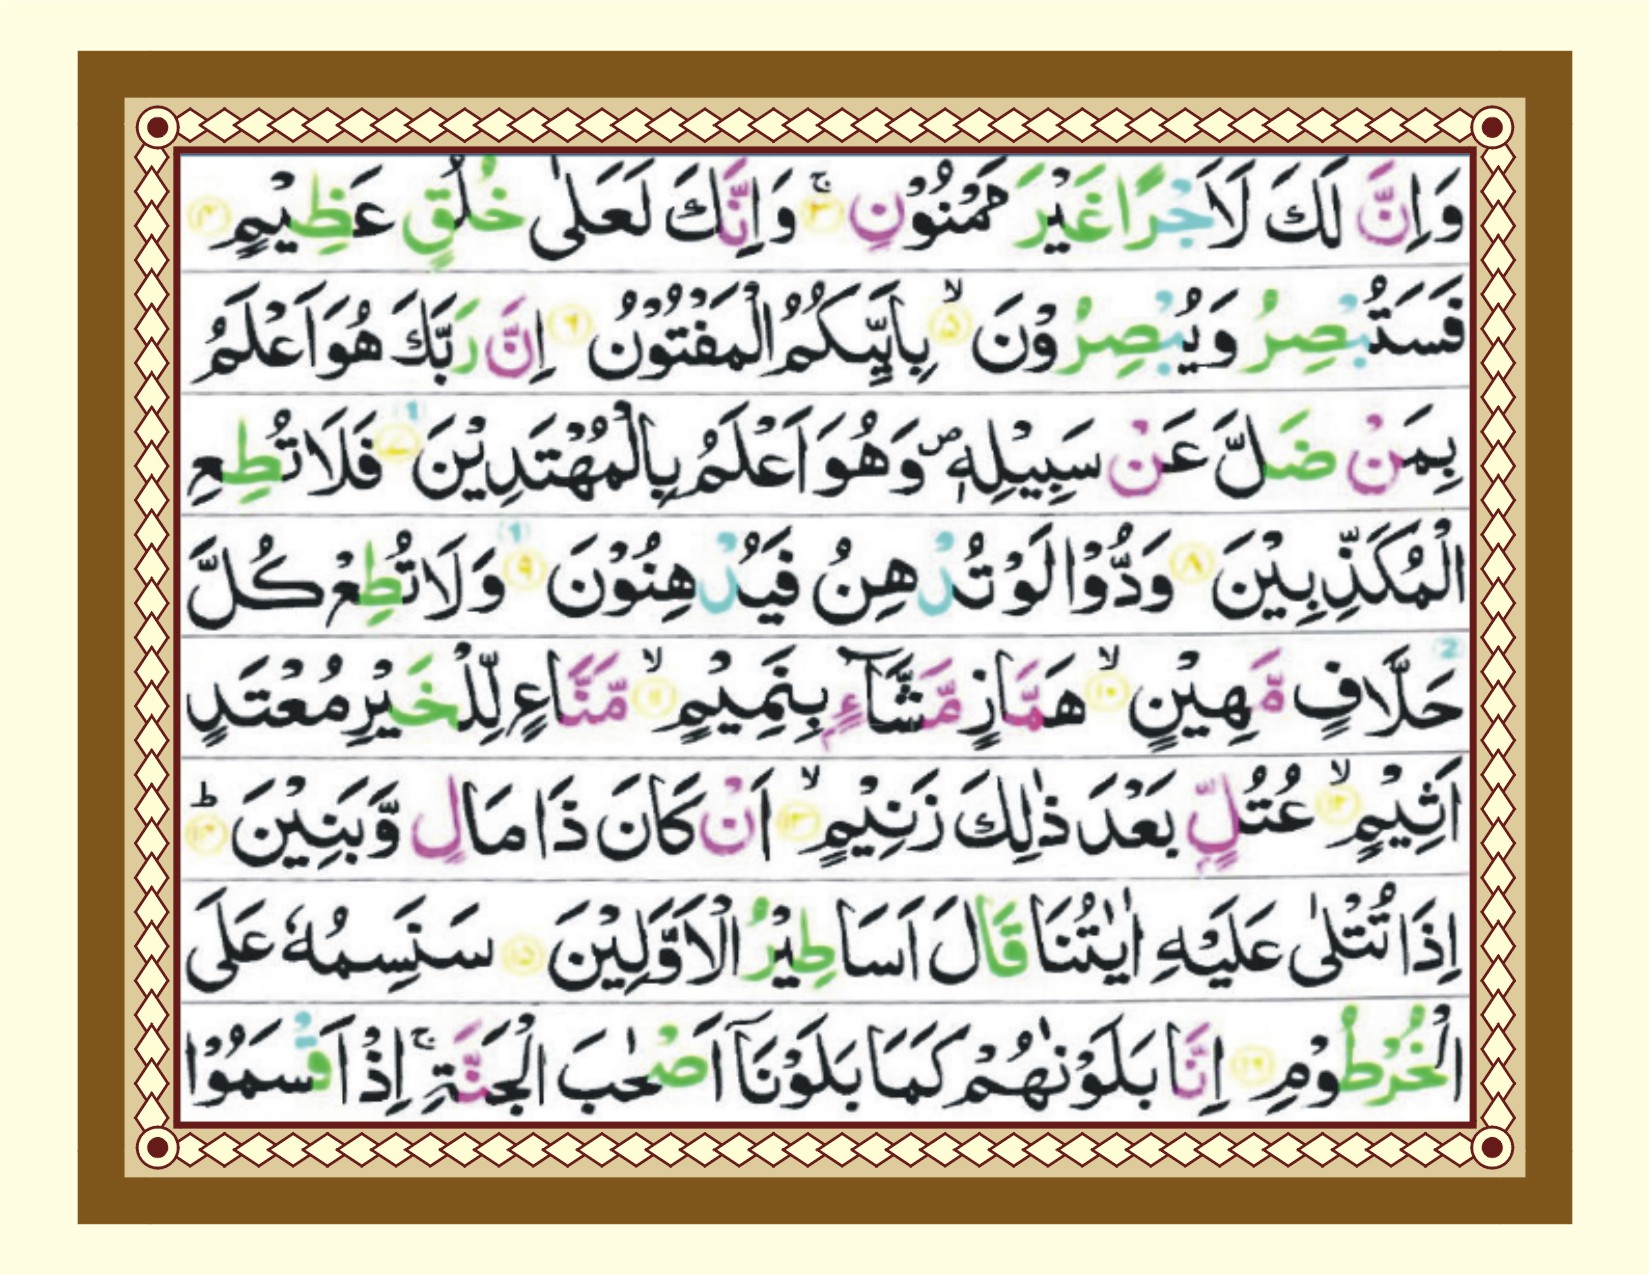 وَاِنَّ لَكَ لَاَجْرًا غَيْرَ مَمْنُوْنٍ ۚ ﴿۳﴾ وَاِنَّكَ لَعَلٰى خُلُقٍ عَظِيْمٍ ﴿۴﴾
فَسَتُبْصِرُ وَيُبْصِرُوْنَ ۙ ﴿۵﴾ بِاَيِّىكُمُ الْمَفْتُوْنُ ﴿۶﴾ اِنَّ رَبَّكَ هُوَ اَعْلَمُ
بِمَنْ ضَلَّ عَنْ سَبِيْلِهٖ ۖ وَهُوَ اَعْلَمُ بِالْمُهْتَدِيْنَ ﴿۷﴾ فَلَا تُطِعِ
الْمُكَذِّبِيْنَ ﴿۸﴾ وَدُّوْا لَوْ تُدْهِنُ فَيُدْهِنُوْنَ ﴿۹﴾ وَلَا تُطِعْ كُلَّ
حَلَّافٍ مَّهِيْنٍ ۙ ﴿۱۰﴾ هَمَّازٍ مَّشَّآءٍۭ بِنَمِيْمٍ ۙ ﴿۱۱﴾ مَّنَّاعٍ لِّلْخَيْرِ مُعْتَدٍ
اَثِيْمٍ ۙ ﴿۱۲﴾ عُتُلٍّۭ بَعْدَ ذٰلِكَ زَنِيْمٍ ۙ ﴿۱۳﴾ اَنْ كَانَ ذَا مَالٍ وَّبَنِيْنَ ؕ ﴿۱۴﴾
اِذَا تُتْلٰى عَلَيْهِ اٰيٰتُنَا قَالَ اَسَاطِيْرُ الْاَوَّلِيْنَ ﴿۱۵﴾ سَنَسِمُهٗ عَلَى
الْخُرْطُوْمِ ﴿۱۶﴾ اِنَّا بَلَوْنٰهُمْ كَمَا بَلَوْنَاۤ اَصْحٰبَ الْجَنَّةِ ۚ اِذْ اَقْسَمُوْا